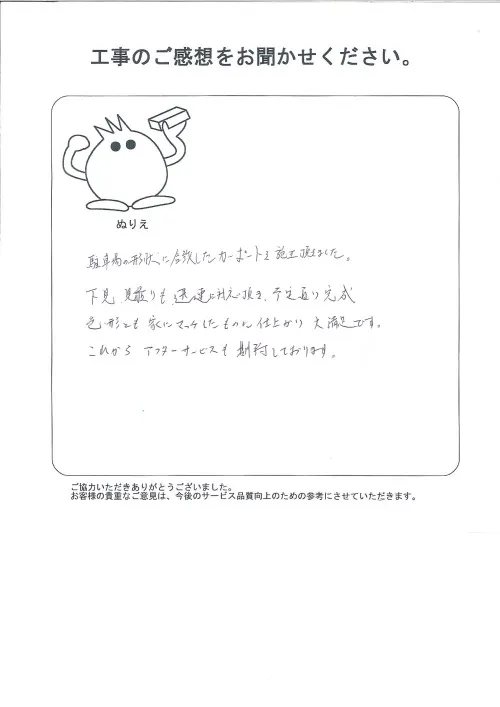 工事のご感想をお聞かせください。
ぬりえ
駐車場の形状に合致したカーポートを施工頂きました。
下見、見積りも迅速に対応頂き、予定通り完成
色、形とも家にマッチしたものに仕上がり大満足です。
これからアフターサービスも期待しております。
ご協力いただきありがとうございました。
お客様の貴重なご意見は、今後のサービス品質向上のための参考にさせていただきます。